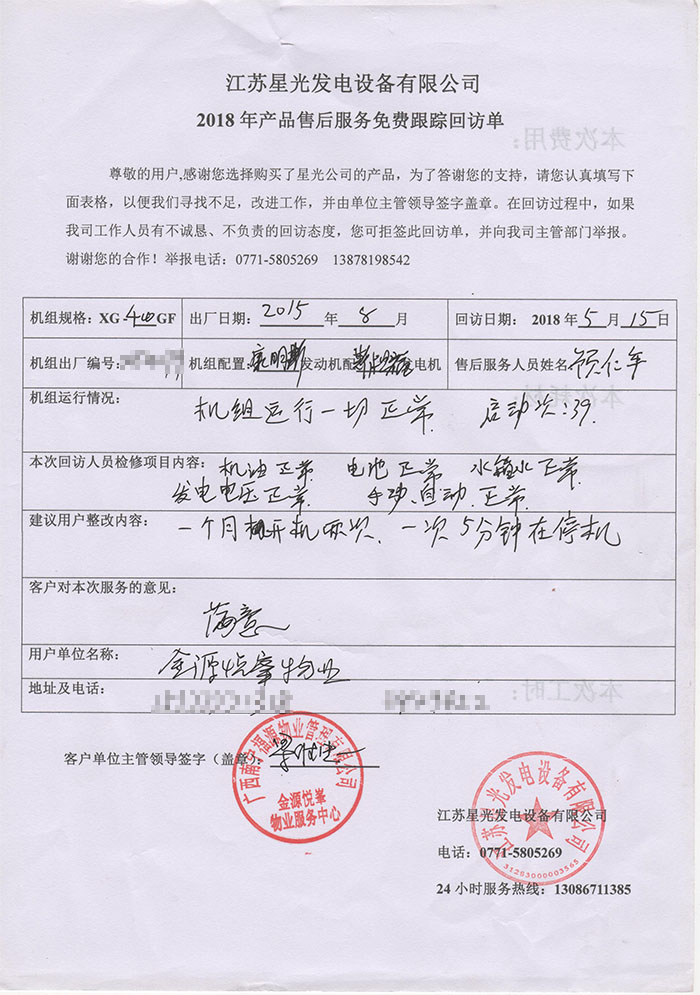 江苏星光发电设备有限公司
2018 年产品售后服务免费跟踪回访单
尊敬的用户,感谢您选择购买了星光公司的产品，为了答谢您的支持，请您认真填写下
面表格，以便我们寻找不足，改进工作，并由单位主管领导签字盖章。在回访过程中，如果
我司工作人员有不诚恳、不负责的回访态度，您可拒签此回访单，并向我司主管部门举报。
谢谢您的合作！举报电话：0771-5805269 13878198542
机组规格：XG-400GF 出厂日期：2015 年 8 月 回访日期： 2018 年 5 月 15 日
机组出厂编号： 机组配置：康明斯发动机配 发电机 售后服务人员姓名
机组运行情况： 机组运行一切正常 启动次:39.
本次回访人员检修项目内容： 机油正常 电池正常 水箱水正常
发电电压正常 手动、自动、正常
建议用户整改内容： 一个月开机两次、一次5分钟在停机
客户对本次服务的意见：
满意
用户单位名称： 金源悦峯物业
地址及电话：
客户单位主管领导签字（盖章）：
广西南宁福源物业管理有限公司
金源悦峯
物业服务中心
江苏星光发电设备有限公司
31283000003565
江苏星光发电设备有限公司
电话：0771-5805269
24 小时服务热线：13086711385
本次费用：
本次耗材：
本次工时：